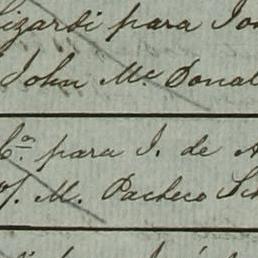 izardi para Jo
John Mc Donal
Ca para J. de A
of. M. Pacheco Sch